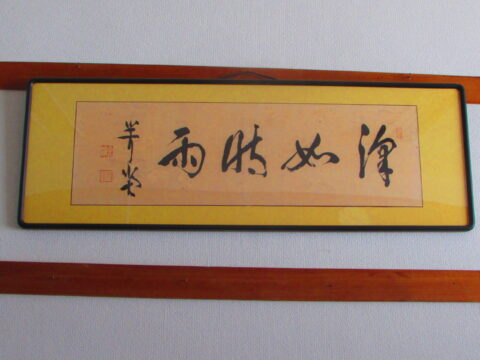 澤如時雨